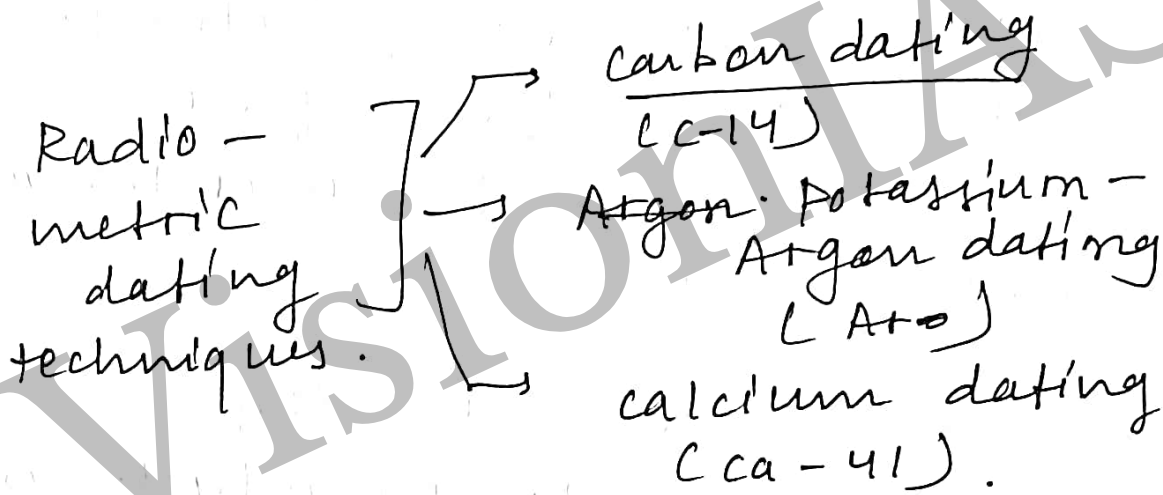 Radio-
metric
dating
techniques.
carbon dating
(C-14)
Argon. Potassium-
Argon dating
(Ar)
calcium dating
(Ca-41).
VisionIAS